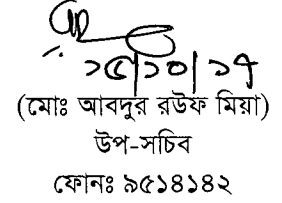 ১৫/১০/১৭
(মোঃ আবদুর রউফ মিয়া)
উপ-সচিব
ফোনঃ ৯৫১৪১৪২